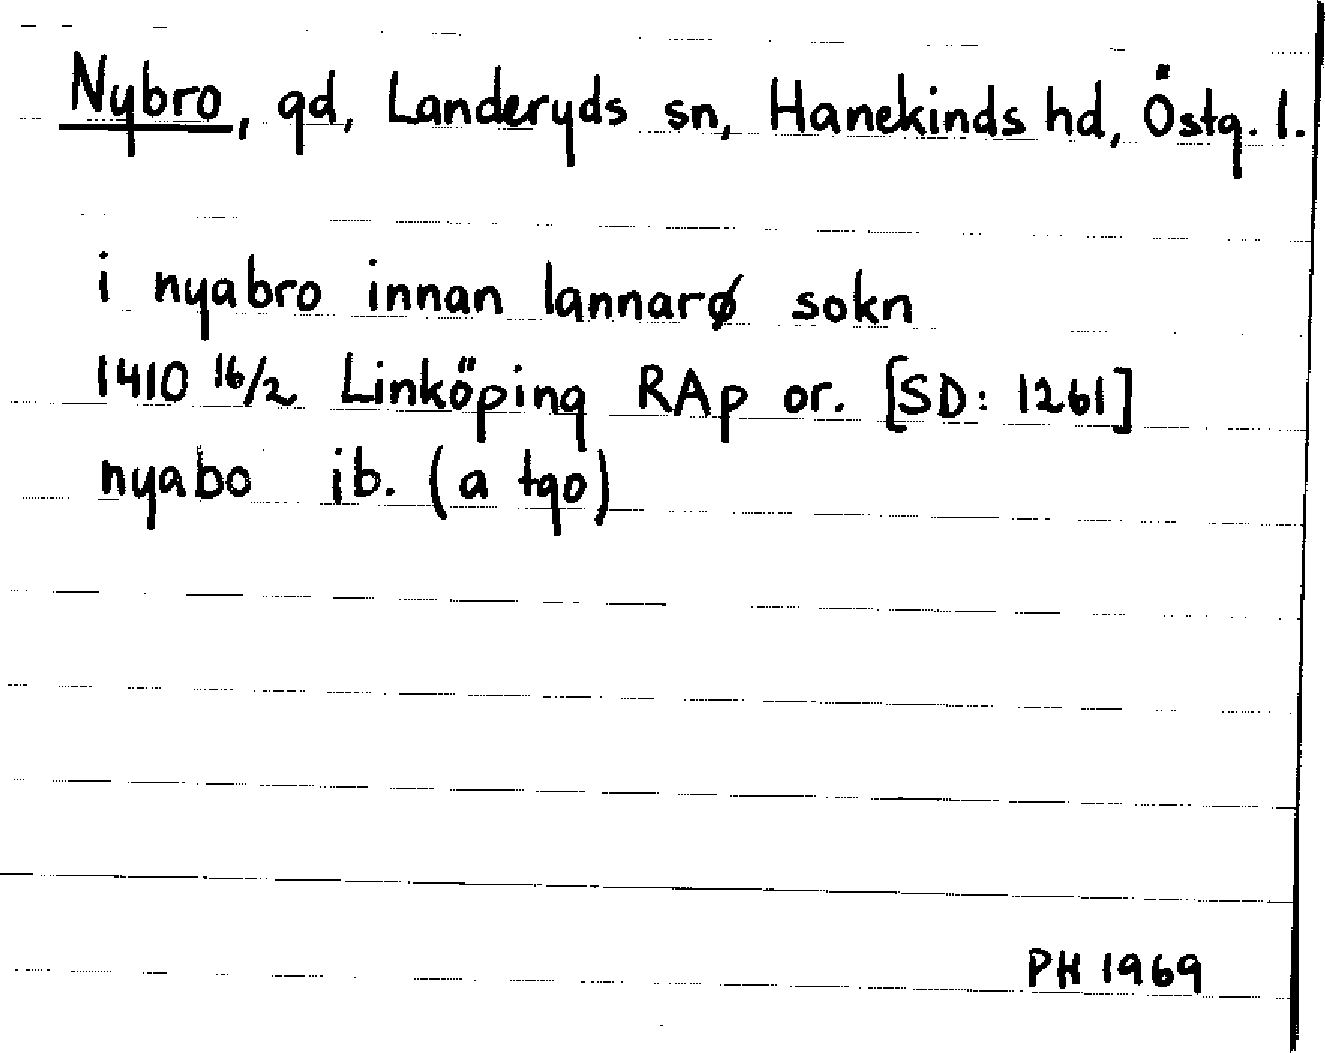 Nybro, gd, Landeryds sn, Hanekinds hd, Östg. l.
i nyabro innan lannarø sokn
1410 16/2 Linköping RAp or. [SD: 1261]
nyabo ib. (a tgo)
PH 1969